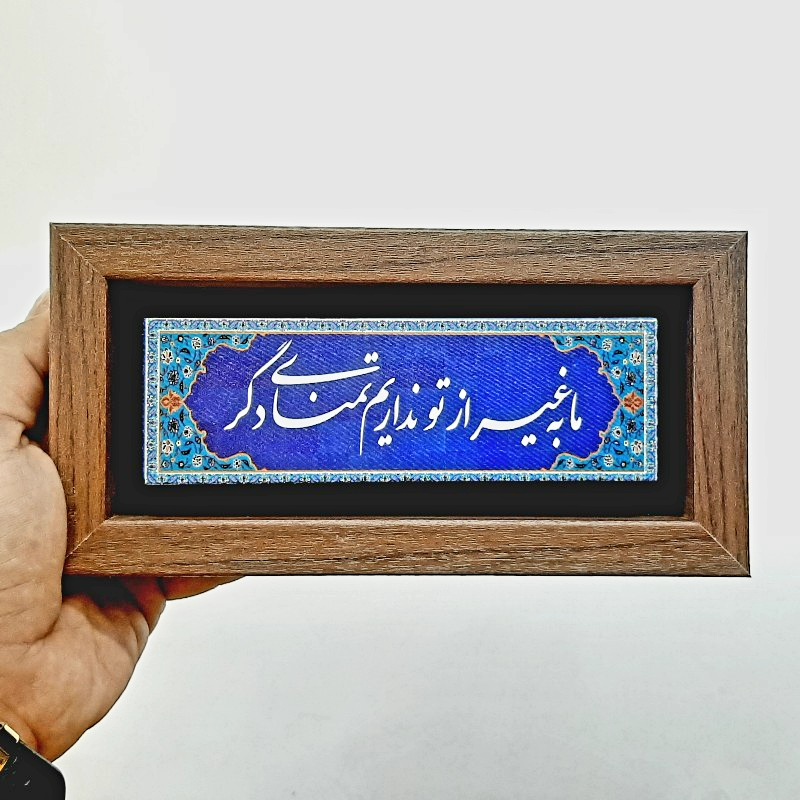 ما به غیر از تو نداریم تمنای دگر